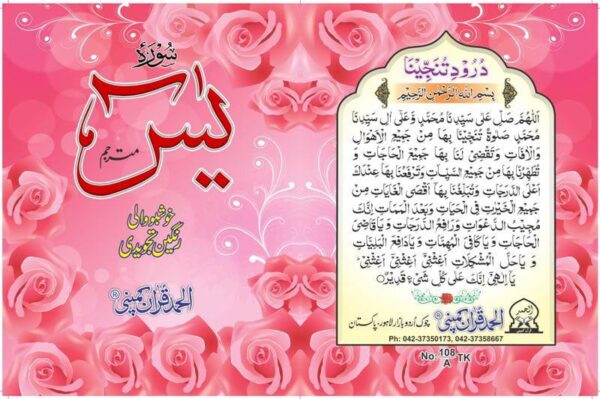 سُورَۃ
یٰسٓ
مترجم
خوشبو والی
رنگین تجویدی
الحمد قرآن کمپنی®
دُرُودِ تُنَجِّیْنَا
بِسْمِ اللهِ الرَّحْمٰنِ الرَّحِیْمِ
اَللّٰهُمَّ صَلِّ عَلٰی سَیِّدِنَا مُحَمَّدٍ وَّعَلٰی اٰلِ سَیِّدِنَا
مُحَمَّدٍ صَلٰوةً تُنَجِّیْنَا بِهَا مِنْ جَمِیْعِ الْاَهْوَالِ
وَالْاٰفَاتِ وَتَقْضِیْ لَنَا بِهَا جَمِیْعَ الْحَاجَاتِ وَ
تُطَهِّرُنَا بِهَا مِنْ جَمِیْعِ السَّیِّاٰتِ وَتَرْفَعُنَا بِهَا عِنْدَكَ
اَعْلَی الدَّرَجَاتِ وَتُبَلِّغُنَا بِهَا اَقْصَی الْغَایَاتِ مِنْ
جَمِیْعِ الْخَیْرٰتِ فِی الْحَیَاتِ وَبَعْدَ الْمَمَاتِ اِنَّكَ
مُجِیْبُ الدَّعْوَاتِ وَرَافِعُ الدَّرَجَاتِ وَیَاقَاضِیَ
الْحَاجَاتِ وَیَا كَافِیَ الْمُهِمَّاتِ وَیَادَافِعَ الْبَلِیَّاتِ
وَیَا حَلَّ الْمُشْكِلَاتِ اَغِثْنِیْ اَغِثْنِیْ اَغِثْنِیْ
یَا اِلٰهِیْ اِنَّكَ عَلٰی كُلِّ شَیْءٍ قَدِیْرٌ
الحمد قرآن کمپنی® چوک اُردو بازار لاہور-پاکستان
Ph: 042-37350173, 042-37358667
No. 108 TK
A